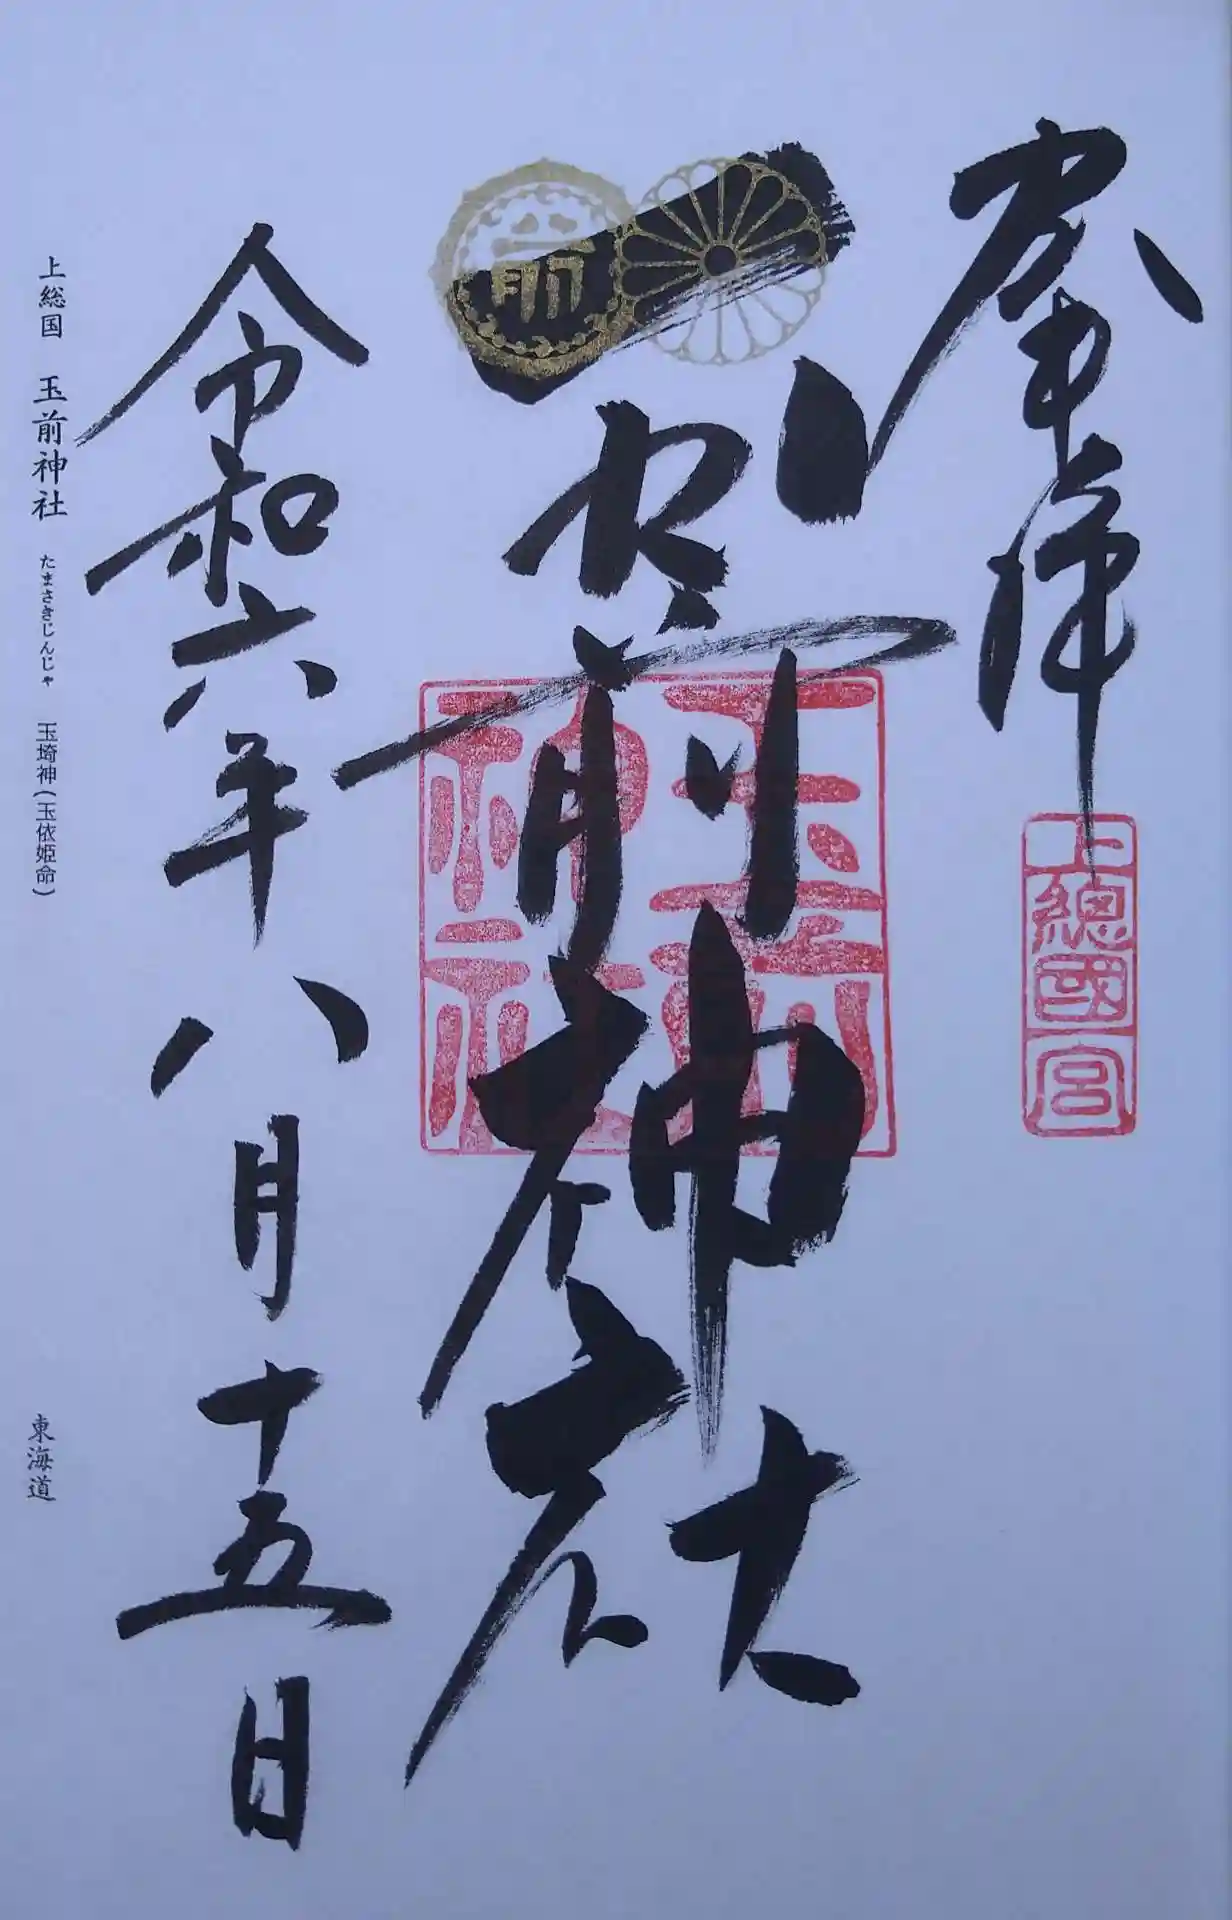 奉拝
上總國一宮
一宮
玉前神社
玉前神社
令和六年八月十五日
上総国 玉前神社 たまさきじんじゃ 玉埼神(玉依姫命)
東海道